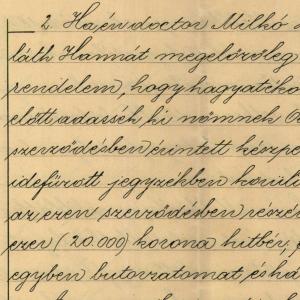 2. Ha én doctor Milkó
láth Hannát megelőzőleg
rendelem, hogy hagyatéko
előtt adassék ki nőmnek
szerződésben érintett készpé
idefűzött jegyzékben körül
az ezen szerződésben részé
ezer (20.000) korona hitbér,
egyben butorzatomat, és há